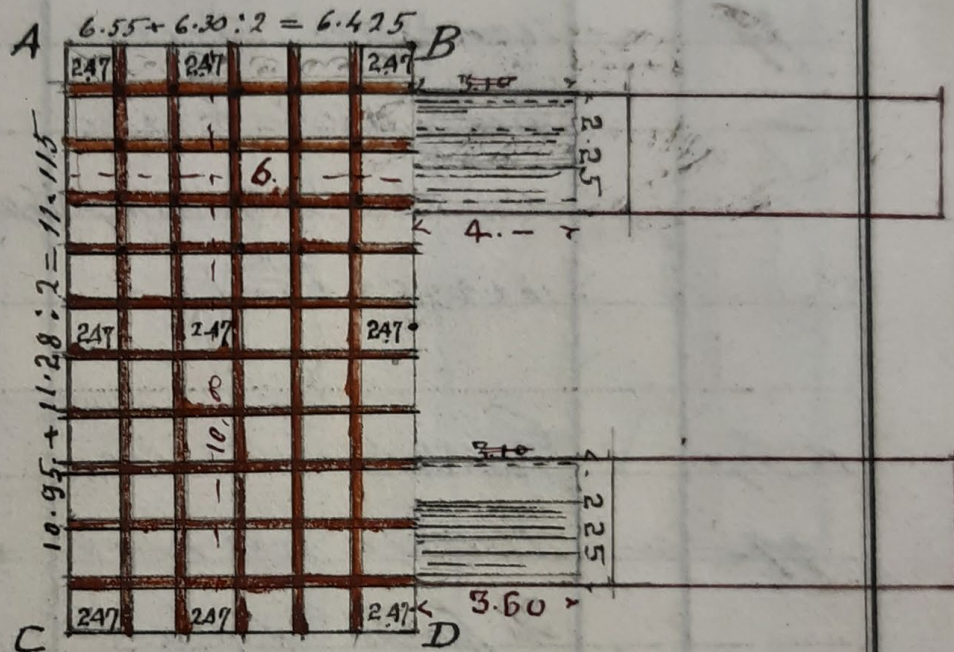 6.55 + 6.30 : 2 = 6.425
A B
247 247 247
3.10
2.25
6.
4.-
10.95. + 11.28 : 2 = 11.115
247 247 247
10,8
3.10
2 25
3.60
247 247 247
C D